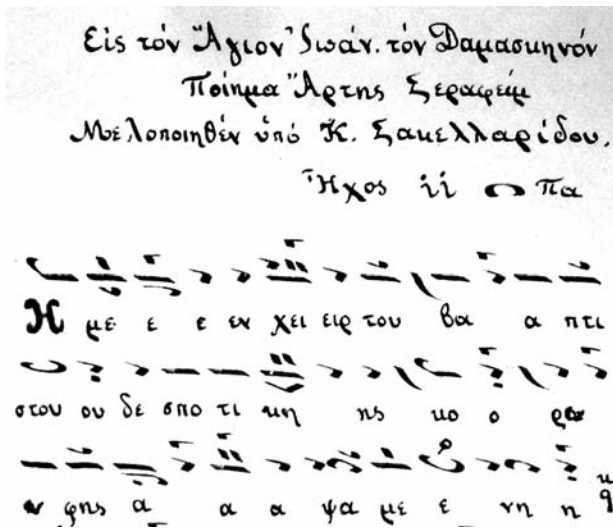 Εἰς τόν Ἅγιον Ἰωάν. τόν Δαμασκηνόν
Ποίημα Ἄρτης Σεραφείμ
Μελοποιηθέν ὑπό Κ. Σακελλαρίδου.
Ἦχος πα
Η με ε ε εν χει ειρ του βα α πτι
στου ου δε σπο τι κη ης κο ο ρυ
υ φης α α α ψα με ε νη η